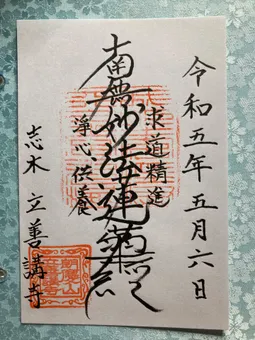 令和五年五月六日
求道精進
南無妙法蓮華経
浄心供養
志木 立善講寺